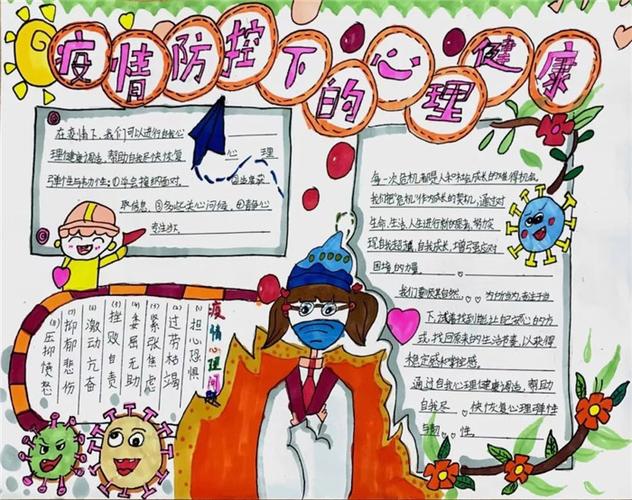 疫情防控下的心理健康
在疫情下,我们可以进行自我心
理健康调适,帮助自我尽快恢复 心 理
弹性与
取信息,
专注当下
疫情心理问题
(1)担心恐惧
(2)过劳枯竭
(3)紧张焦虑
(4)委屈无助
(5)挫败自责
(6)激动亢奋
(7)抑郁悲伤
(8)压抑愤怒
每一次危机都是人和社会成长的难得机会。
我们把“危机”作为成长的契机,通过对
生命、生活、人生进行新的思考,努力实
现自我超越,自我成长,增强应对
困境的力量。
我们要顺其自然、为所当为,专注于当
下,试着找到能让自己安心的方
式,找回原来的生活节奏,以获得
稳定感和掌控感。
通过自我心理健康调适,帮助
自我尽 快恢复心理弹性
与韧 性。